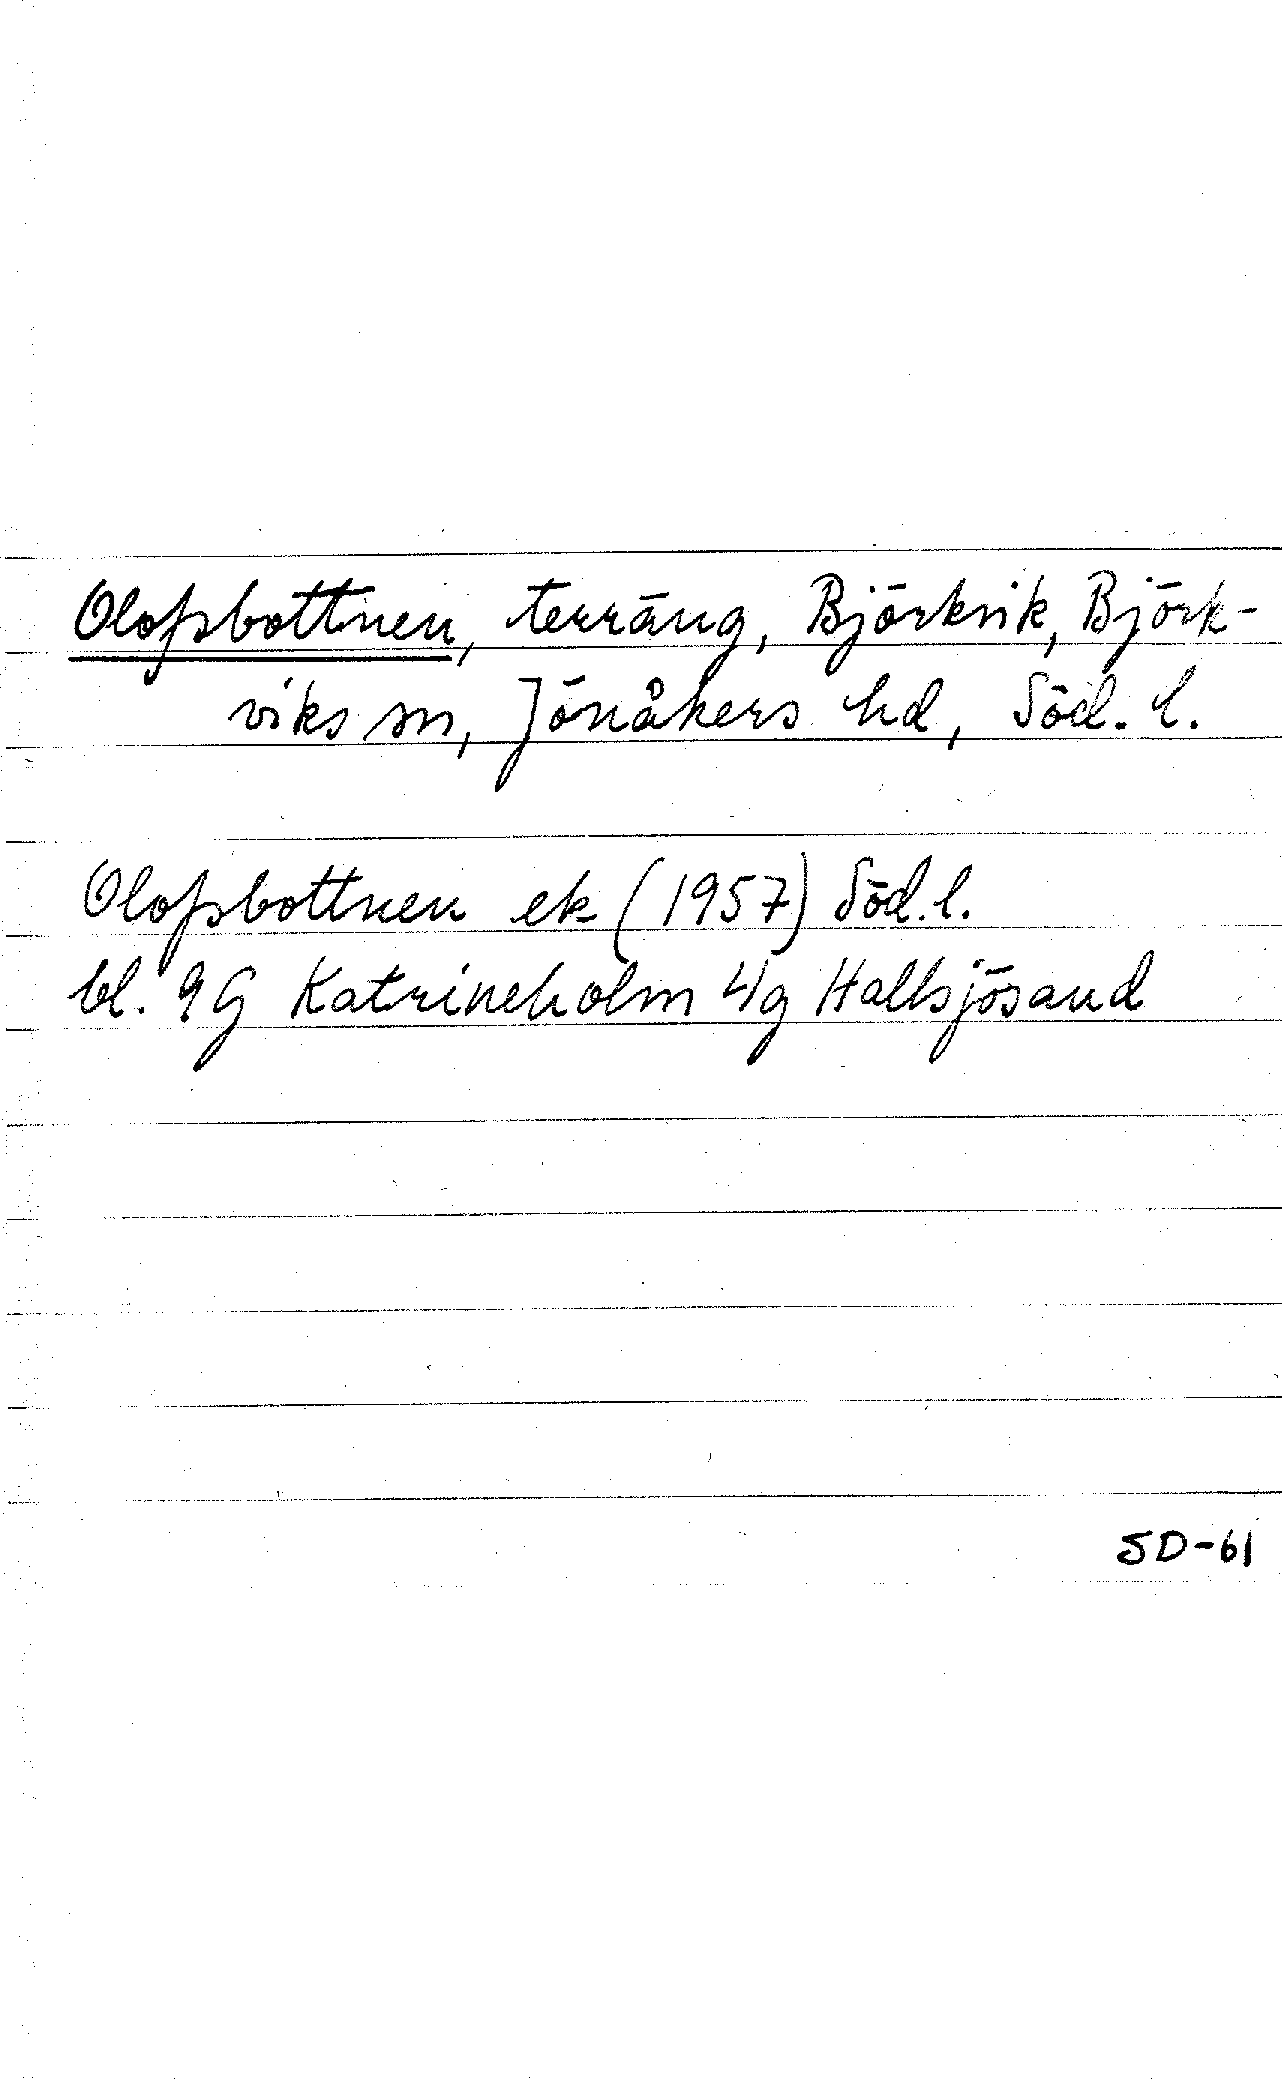 Olofsbottnen, terräng, Björkvik, Björk-
viks sn, Jönåkers hd, Söd. l.
Olofsbottnen ek (1957) Söd. l.
bl. 9G Katrineholm 4g Hallsjösand
SD-61